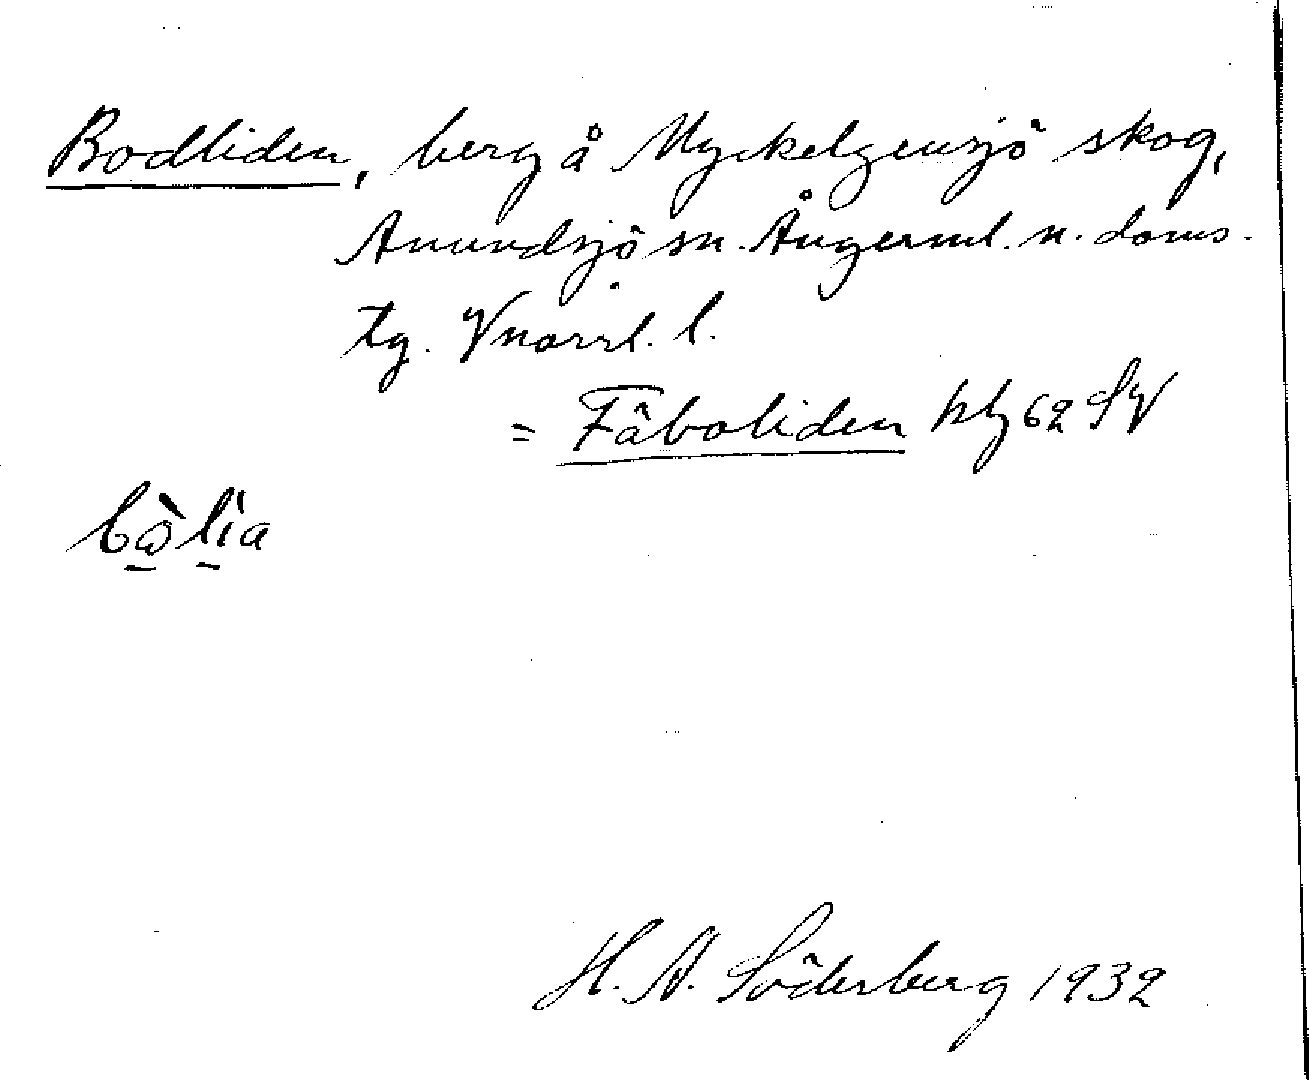 Bodliden, berg å Myckelgensjö skog,
Anundsjö sn. Ångerml. n. doms.
tg. Vnorrl. l.
= Fäboliden kbl 62 SV
bὼlìa
H. A. Söderberg 1932